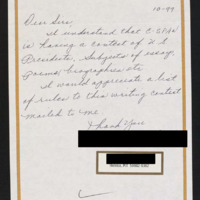 10-99
Dear Sirs,
I understand that C-SPAN
is having a contest of U.S.
Presidents, Subjects of essay,
Poems, biographies etc.
I would appreciate a list
of rules to this writing contest
mailed to me.
Thank You